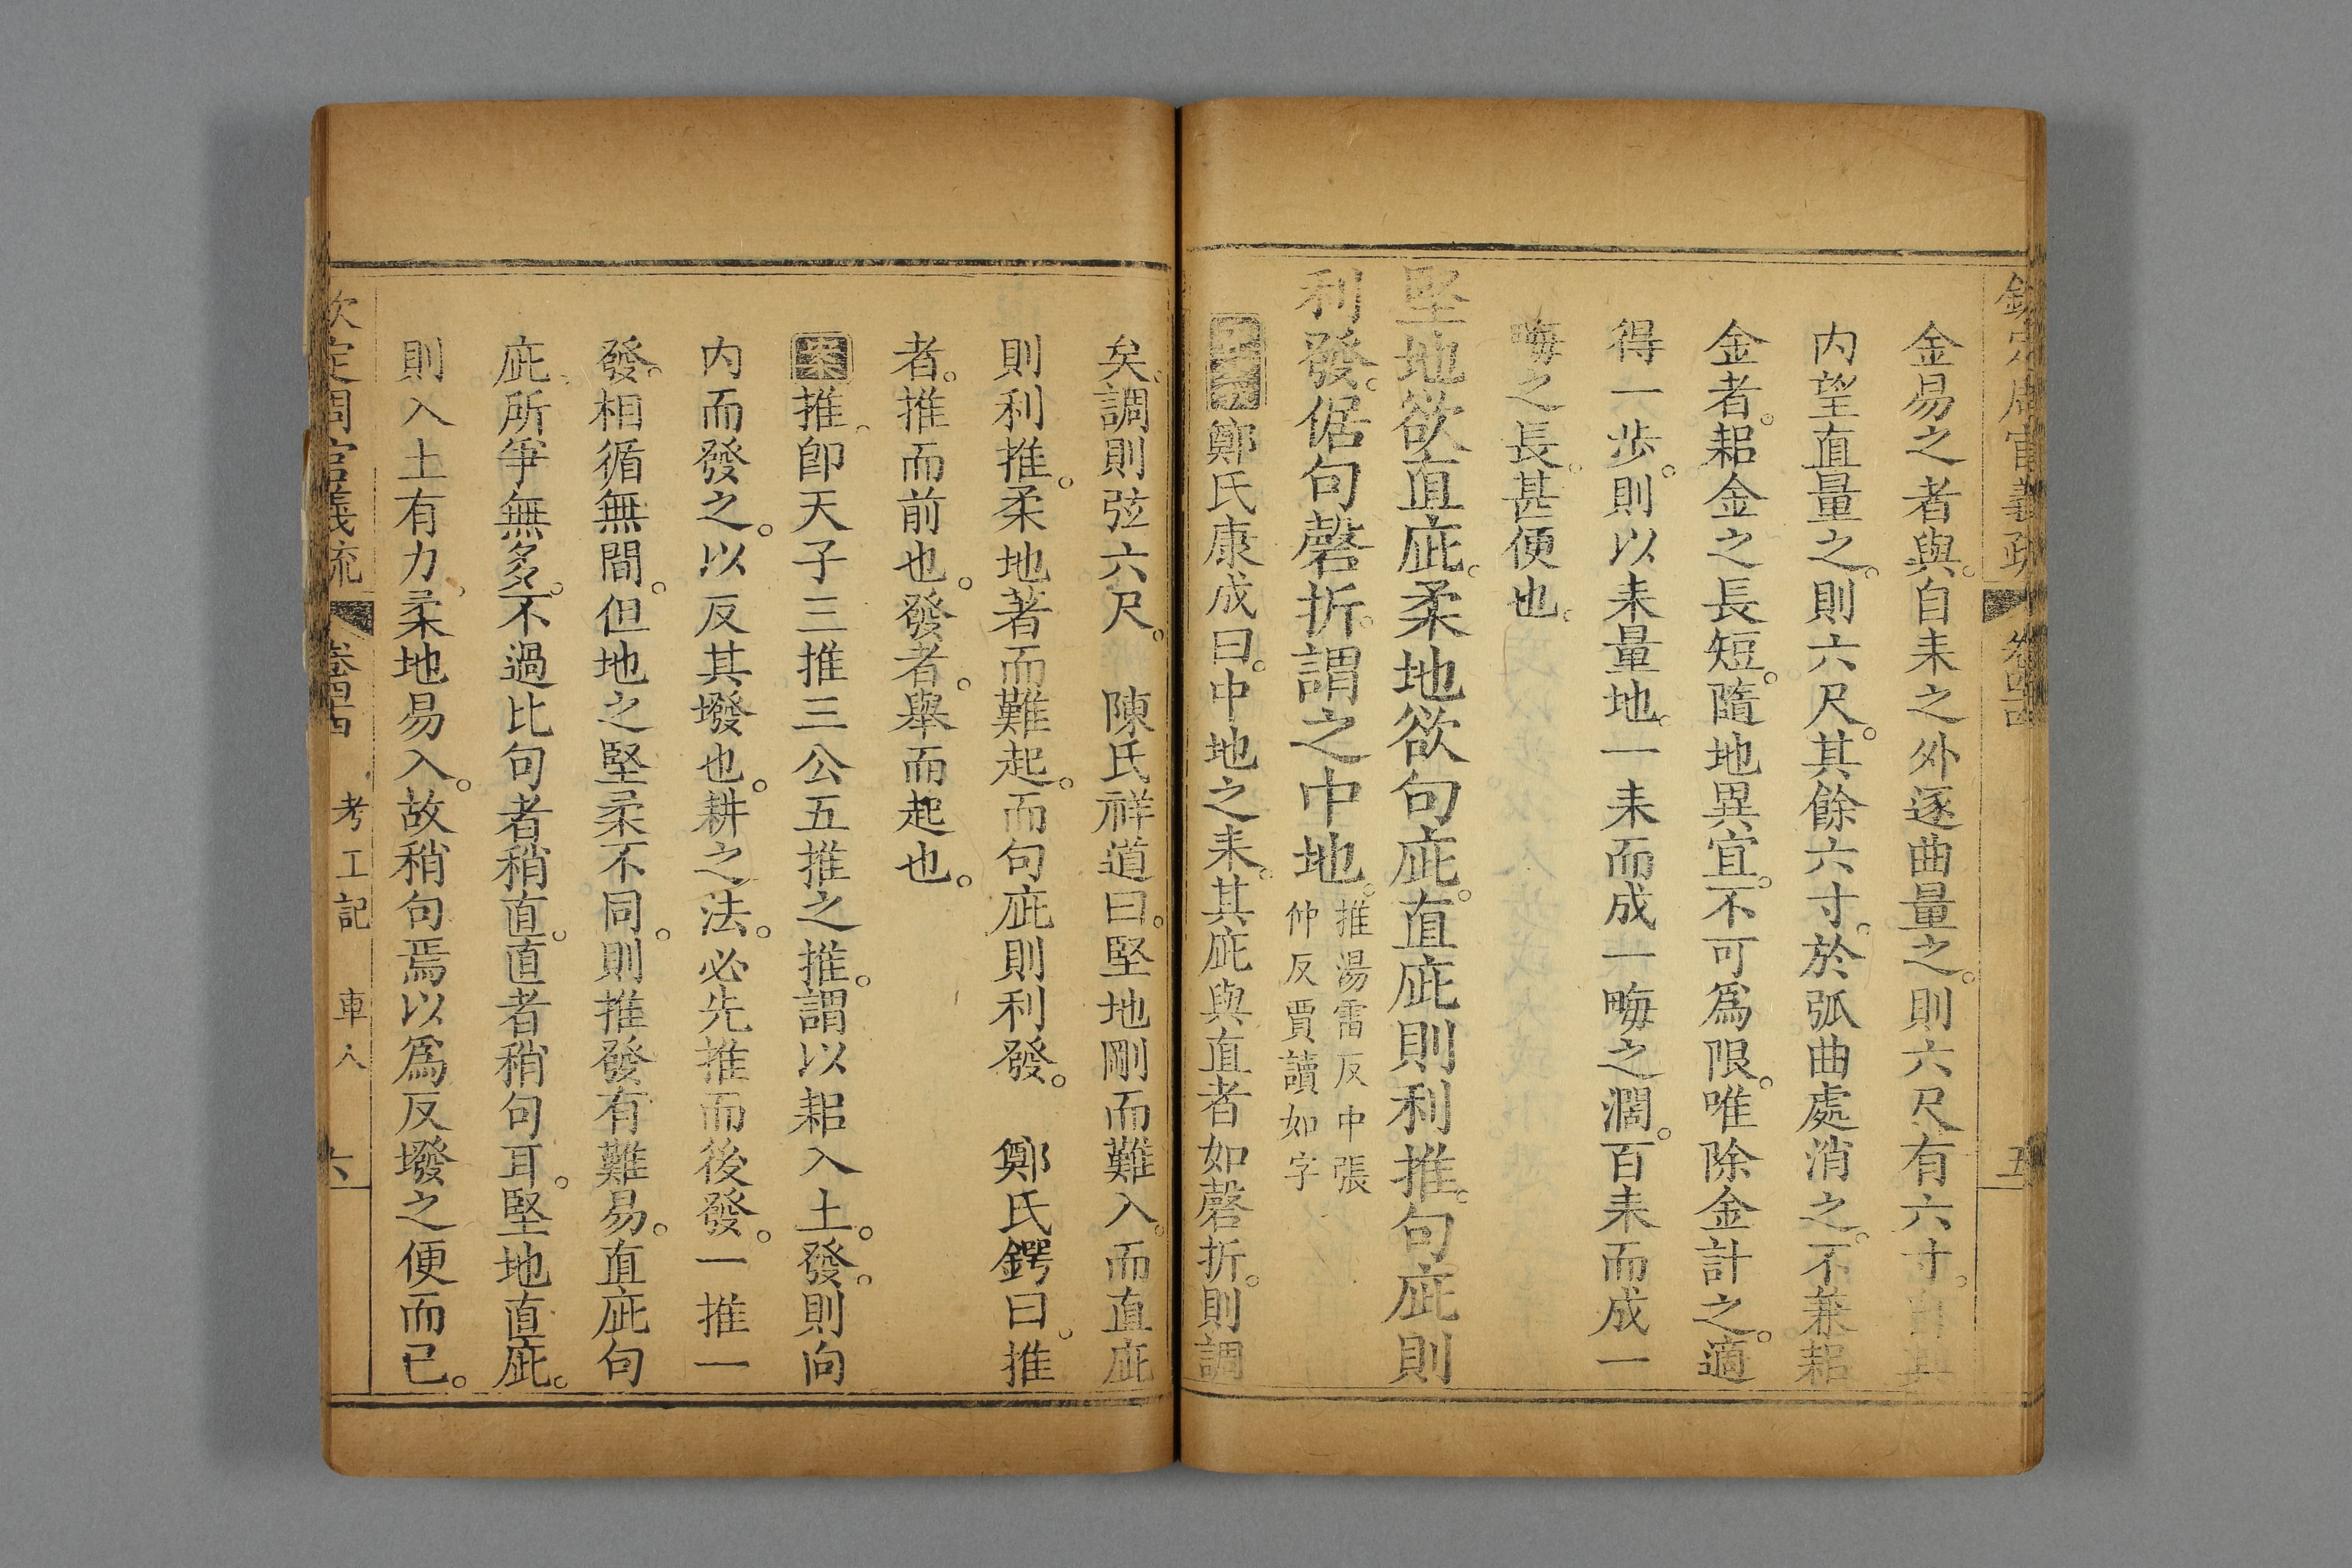 欽定周官義疏 卷四 五
金易之者與。自耒之外逐曲量之。則六尺有六寸。自其
内望直量之。則六尺。其餘六寸。於弧曲處消之。不兼耜
金者。耜金之長短。隨地異宜。不可爲限。唯除金計之。適
得一步。則以耒量地。一耒而成一畮之濶。百耒而成一
畮之長。甚便也。
堅地欲直庛。柔地欲句庛。直庛則利推。句庛則
利發。倨句磬折。謂之中地。
推湯雷反中張
仲反賈讀如字
鄭氏康成曰。中地之耒。其庛與直者如磬折。則調
矣。調則弦六尺。 陳氏祥道曰。堅地剛而難入。而直庛
則利推。柔地著而難起。而句庛則利發。 鄭氏鍔曰。推
者。推而前也。發者。舉而起也。
案推。卽天子三推三公五推之推。謂以耜入土。發。則向
内而發之。以反其墢也。耕之法。必先推而後發。一推一
發。相循無間。但地之堅柔不同。則推發有難易。直庛句
庛。所爭無多。不過比句者稍直。直者稍句耳。堅地直庛。
則入土有力。柔地易入。故稍句焉以爲反墢之便而已。
欽定周官義疏 卷四 考工記 車人 六